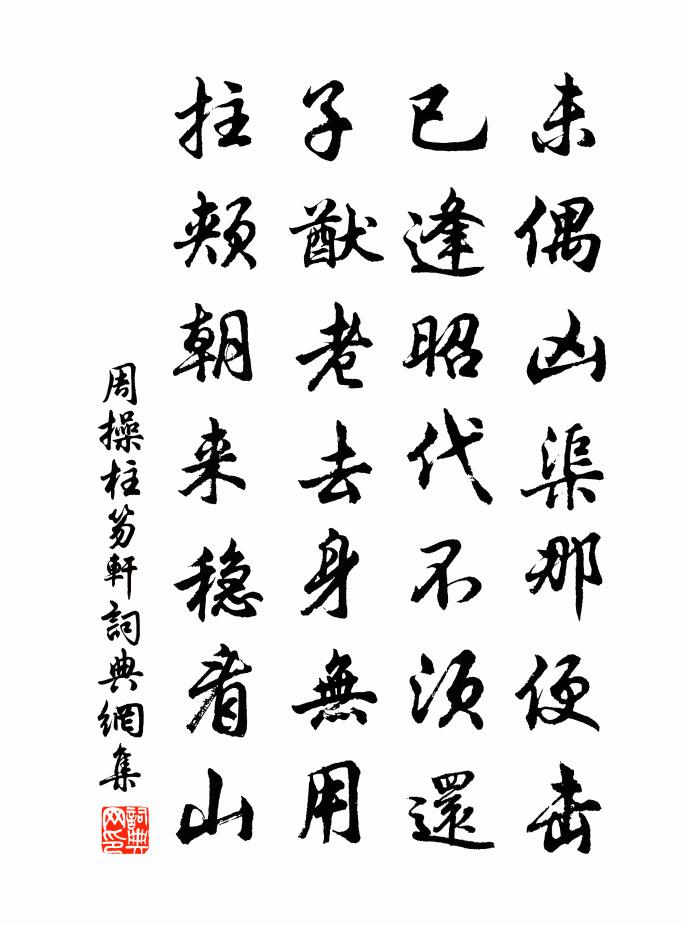 未偶凶渠那便击
已逢昭代不須還
子猷老去身無用
拄頰朝来稳看山
周操柱笏軒詞典網集
詞典网印